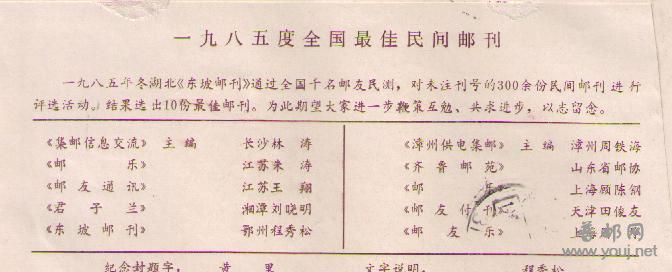 一九八五度全国最佳民间邮刊
一九八五年冬湖北《东坡邮刊》通过全国千名邮友民测，对未注刊号的300余份民间邮刊进行
评选活动。结果选出10份最佳邮刊。为此期望大家进一步鞭策互勉、共求进步，以志留念。
《集邮信息交流》 主编 长沙林 涛 《漳州供电集邮》 主编 漳州周铁海
《邮 乐》 江苏朱 涛 《齐鲁邮苑》 山东省邮协
《邮友通讯》 江苏王 翔 《邮 》 上海顾陈钢
《君子兰》 湘潭刘晓明 《邮友付刊》 天津田俊友
《东坡邮刊》 鄂州程秀松 《邮友乐》 上海
纪念封题字： 黄 里 文字说明： 程秀松
邮网
www.youj.net